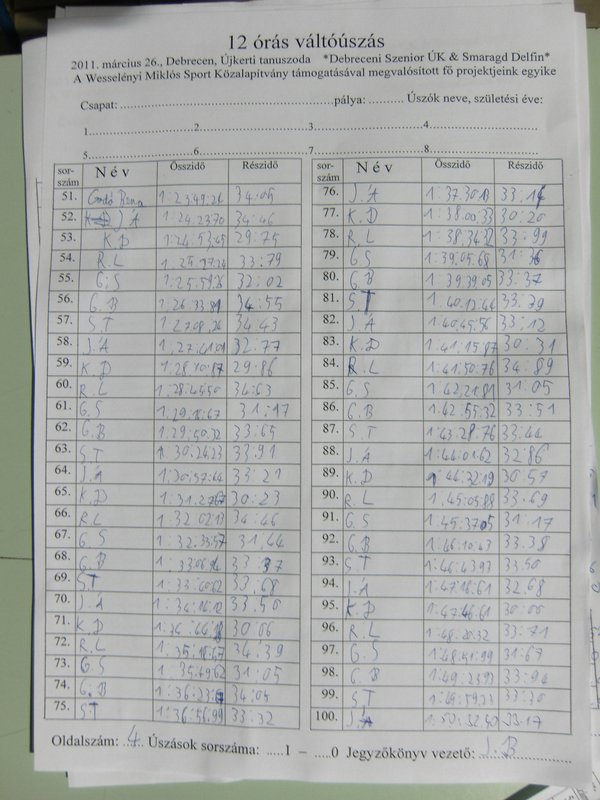 12 órás váltóúszás
2011. március 26., Debrecen, Újkerti tanuszoda *Debreceni Szenior ÚK & Smaragd Delfin*
A Wesselényi Miklós Sport Közalapítvány támogatásával megvalósított fő projektjeink egyike
Csapat: ........ pálya: ........ Úszók neve, születési éve:
1........2........3........4........
5........6........7........8........
sor-szám Név Összidő Részidő sor-szám Név Összidő Részidő
51. 34:05 76. J.A 1:37.30
52. J A 1:24.23.70 34:46 77. K.D 1:38:00:33 30:20
53. K.D 1:24:53:45 29:75 78. R.L 1:38:34:32 33:99
54. R.L 33:79 79. G.S 1:39:05:68
55. G.S 1:25:59:26 32:02 80. G.B 1:39:39:05 33:37
56. G.B 1:26:33:81 34:55 81. S.T 1:40:12:44 33:39
57. S.T 34:43 82. J.A 1:40:45:56 33:12
58. J.A 1:27:41:01 32:77 83. K.D 1:41:15:87 30:31
59. K.D 1:28:10:87 29:86 84. R.L 1:41:50:76 34:89
60. R.L 1:28:45:50 34:63 85. G.S 1:42:21:81 31:05
61. G.S 1:29:16:67 31:17 86. G.B 1:42:55:32 33:51
62. G.B 1:29:50:32 33:65 87. S.T 1:43:28:76 33:44
63. S.T 1:30:24:23 33:91 88. J.A 1:44:01:62 32:86
64. J.A 1:30:57:44 33:21 89. K.D 1:44:32:19 30:57
65. K.D 1:31:27:67 30:23 90. R.L 1:45:05:88 33:69
66. R.L 1:32:02:13 34:46 91. G.S 1:45:37:05 31:17
67. G.S 1:32:33:57 31:44 92. G.B 1:46:10:43 33:38
68. G.B 1:33:06:94 33:37 93. S.T 1:46:43:93 33:50
69. S.T 1:33:40:62 33:68 94. J.A 1:47:16:61 32:68
70. J.A 1:34:14:12 33:50 95. K.D 1:47:46:61 30:00
71. K.D 30:06 96. R.L 1:48:20:32 33:71
72. R.L 34:39 97. G.S 1:48:51:99 31:67
73. G.S 1:35:49:62 31:05 98. G.B 1:49:25:93 33:94
74. G.B 34:05 99. S.T 1:49:59:23 33:30
75. S.T 1:36:56:99 33:32 100. J.A 1:50:32:40 33:17
Oldalszám: 4 Úszások sorszáma: .....1 – .....0 Jegyzőkönyv vezető: J.B